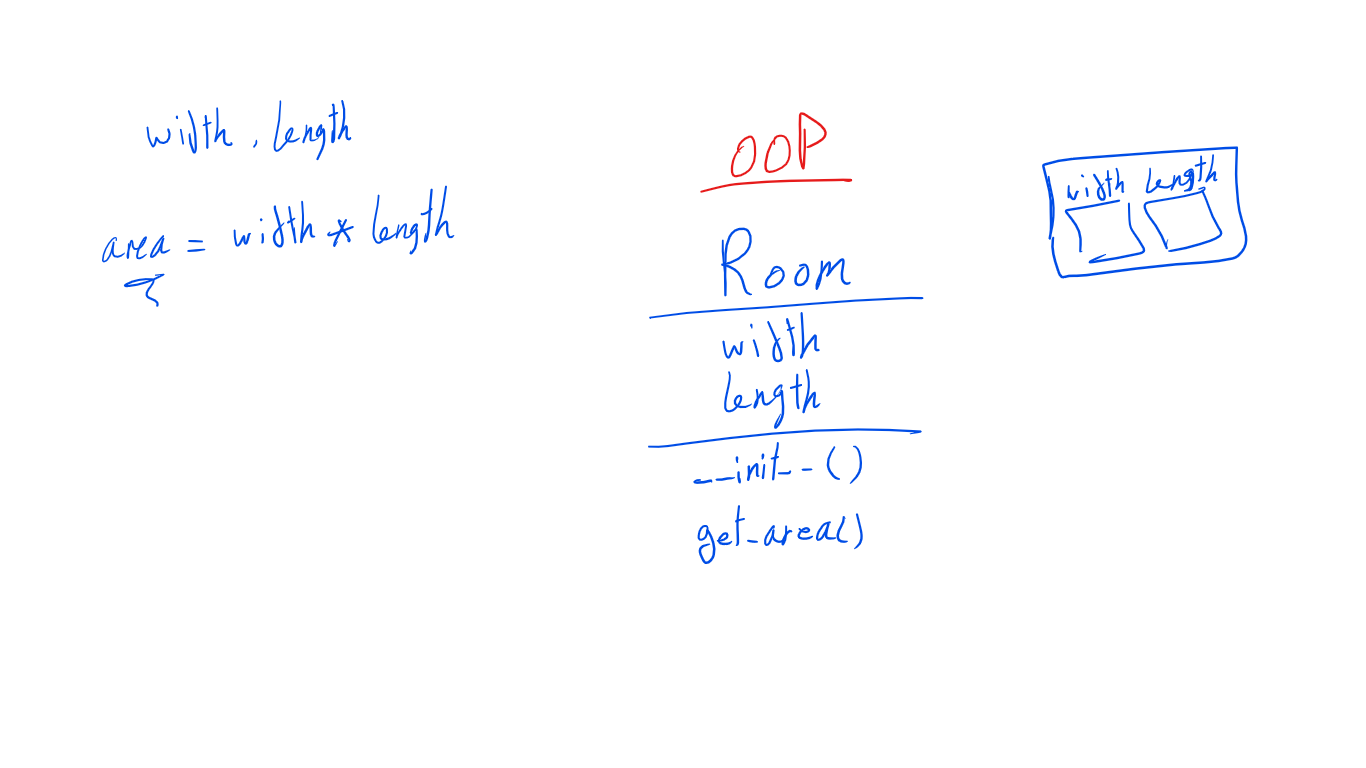 width, length
area = width * length
OOP
Room
width
length
__init__()
get_area()
width length